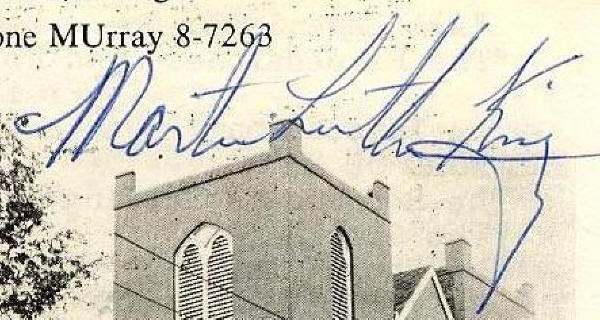 one MUrray 8-7263
Martin Luther King